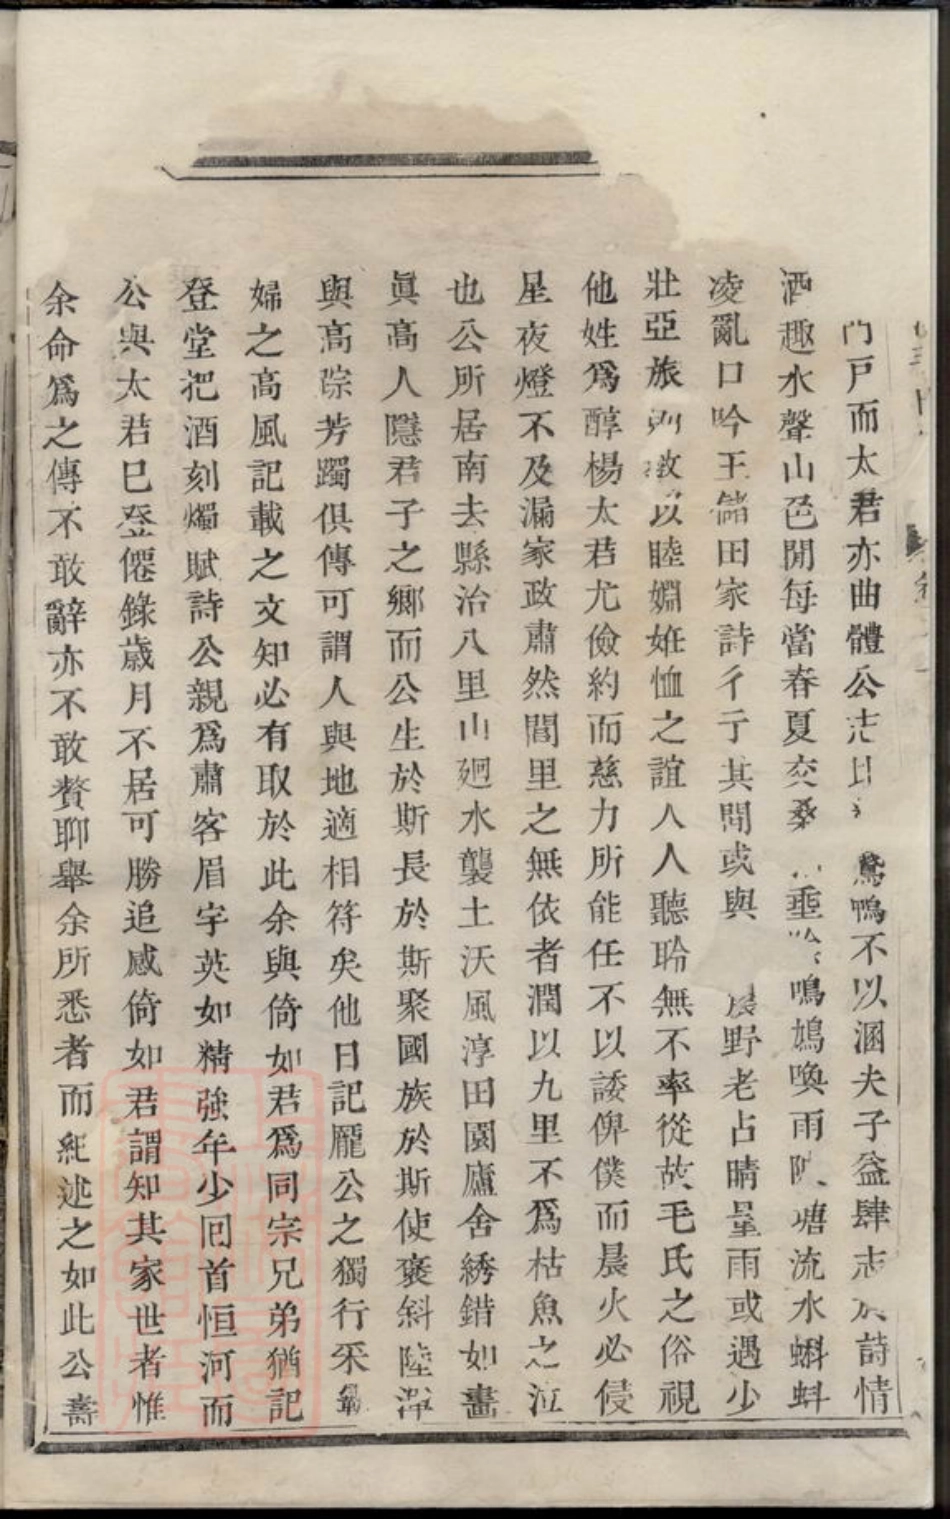 門戸而太君亦曲體公志鵞鴨不以溷夫子益肆志於詩情
酒趣水聲山色閒每當春夏交桑垂鳴鳩喚雨陂塘流水蝌蚪
凌亂口吟王儲田家詩彳亍其間或與晨野老占晴量雨或遇少
壯亞旅教以睦婣姙恤之誼人人聽聆無不率從故毛氏之俗視
他姓爲醇楊太君尤儉約而慈力所能任不以諉俾僕而晨火必侵
星夜燈不及漏家政肅然閭里之無依者潤以九里不爲枯魚之泣
也公所居南去縣治八里山廻水襲土沃風淳田園廬舍綉錯如畵
眞高人隱君子之鄉而公生於斯長於斯聚國族於斯使褒斜陸渾
與高踪芳躅俱傳可謂人與地適相符矣他日記龎公之獨行采
婦之高風記載之文知必有取於此余與倚如君爲同宗兄弟猶記
登堂把酒刻燭賦詩公親爲肅客眉宇英如精強年少囘首恒河而
公與太君巳登僊錄歲月不居可勝追感倚如君謂知其家世者惟
余命爲之傳不敢辭亦不敢贅聊舉余所悉者而紀述之如此公壽